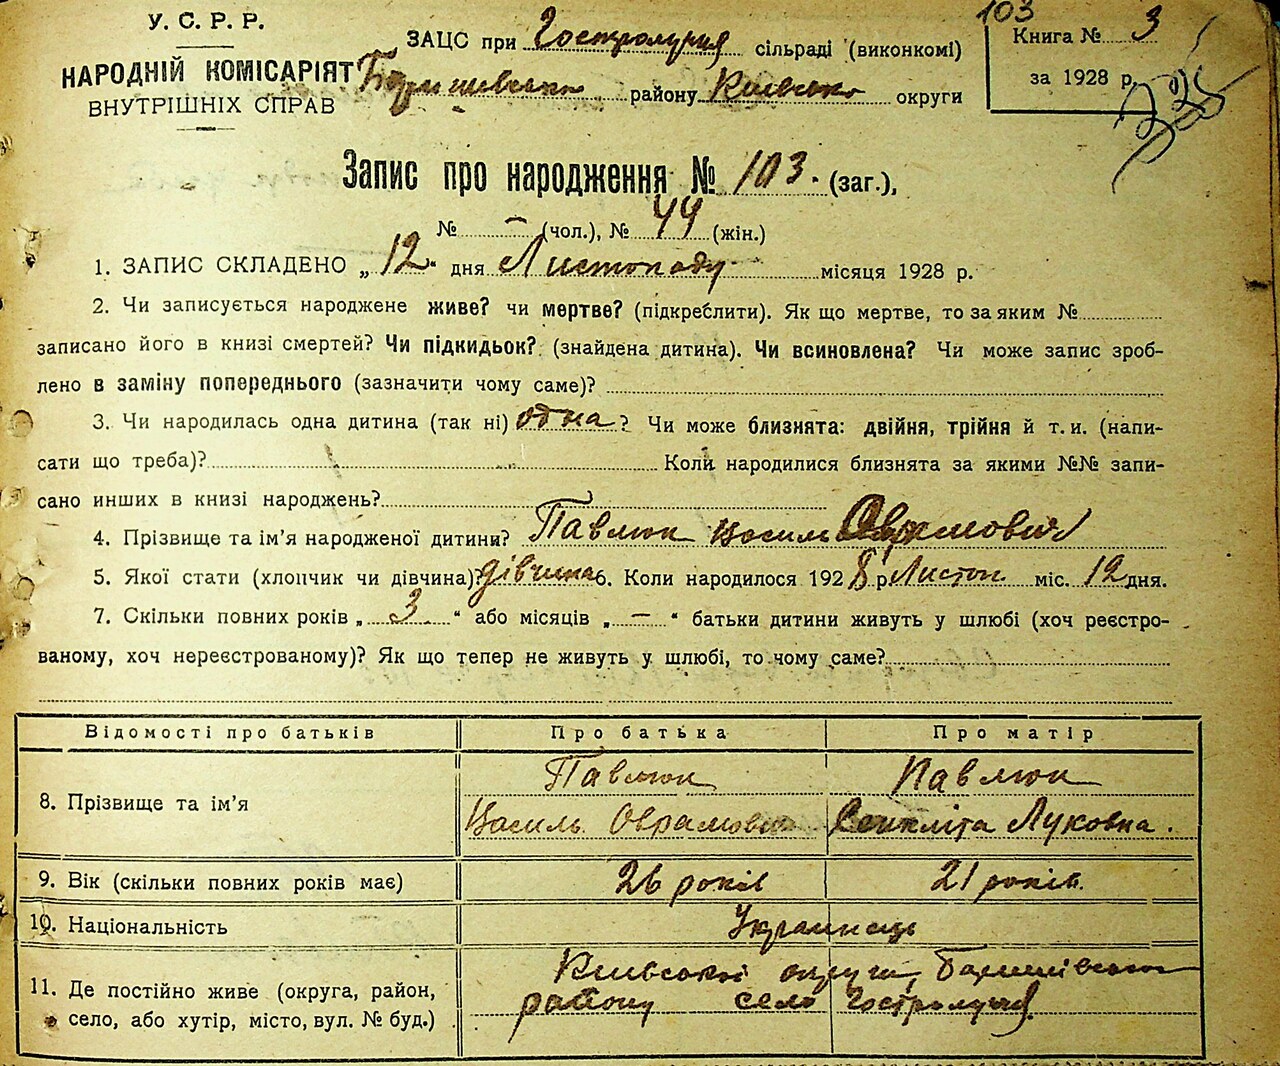 103
У. С. Р. Р.
НАРОДНІЙ КОМІСАРІЯТ
ВНУТРІШНІХ СПРАВ
ЗАЦС при Гостролуччя сільраді (виконкомі)
району Київсько округи
Книга № 3
за 1928 р.
335
Запис про народження № 103. (заг.),
№ – (чол.), № 44 (жін.)
1. ЗАПИС СКЛАДЕНО „ 12 “ дня Листопаду місяця 1928 р.
2. Чи записується народжене живе? чи мертве? (підкреслити). Як що мертве, то за яким №
записано його в книзі смертей? Чи підкидьок? (знайдена дитина). Чи всиновлена? Чи може запис зроб-
лено в заміну попереднього (зазначити чому саме)?
3. Чи народилась одна дитина (так ні) одна? Чи може близнята: двійня, трійня й т. и. (напи-
сати що треба)? Коли народилися близнята за якими №№ запи-
сано инших в книзі народжень?
4. Прізвище та ім’я народженої дитини? Павлюк
5. Якої стати (хлопчик чи дівчина)? дівчина 6. Коли народилося 1928 р. Листоп. міс. 12 дня.
7. Скільки повних років „ 3 “ або місяців „ – “ батьки дитини живуть у шлюбі (хоч реєстро-
ваному, хоч нереєстрованому)? Як що тепер не живуть у шлюбі, то чому саме?
Відомості про батьків Про батька Про матір
8. Прізвище та ім’я
Павлюк Павлюк
Василь Оврамович Луковна.
9. Вік (скільки повних років має) 26 років 21 років.
10. Національність Украинець
11. Де постійно живе (округа, район,
село, або хутір, місто, вул. № буд.)
Київської округи,
району село Гостролуччя.